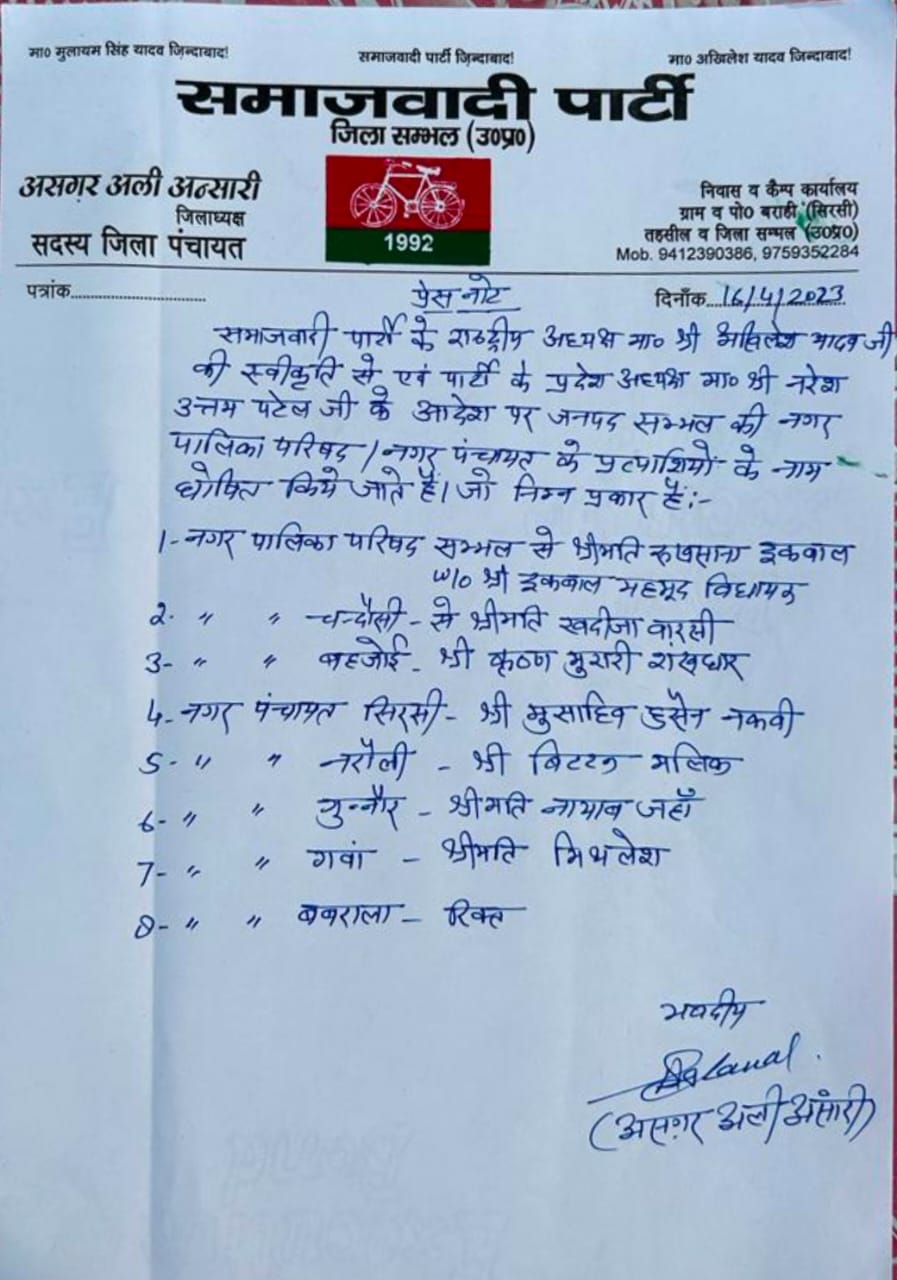 मा० मुलायम सिंह यादव ज़िन्दाबाद! समाजवादी पार्टी ज़िन्दाबाद! मा० अखिलेश यादव ज़िन्दाबाद!
समाजवादी पार्टी
जिला सम्भल (उ०प्र०)
असग़र अली अन्सारी
जिलाध्यक्ष
सदस्य जिला पंचायत
1992
निवास व कैम्प कार्यालय
ग्राम व पो० बराही (सिरसी)
तहसील व जिला सम्भल (उ०प्र०)
Mob. 9412390386, 9759352284
पत्रांक........................
प्रेस नोट
दिनाँक 16/4/2023
समाजवादी पार्टी के राष्ट्रीय अध्यक्ष मा० श्री अखिलेश यादव जी
की स्वीकृति से एवं पार्टी के प्रदेश अध्यक्ष मा० श्री नरेश
उत्तम पटेल जी के आदेश पर जनपद सम्भल की नगर
पालिका परिषद / नगर पंचायत के प्रत्याशियों के नाम
घोषित किये जाते हैं। जो निम्न प्रकार हैं:-
1- नगर पालिका परिषद सम्भल से श्रीमति रुखसाना इकबाल
w/o श्री इकबाल महमूद विधायक
2- " " चन्दौसी - से श्रीमति खदीजा वारसी
3- " " बहजोई - श्री कृष्ण मुरारी शंखधार
4- नगर पंचायत सिरसी - श्री मुसाहिब हुसैन नकवी
5- " " नरौली - श्री बिट्टन मलिक
6- " " गुन्नौर - श्रीमति नायाब जहाँ
7- " " गवां - श्रीमति मिथलेश
8- " " बबराला - रिक्त
भवदीय
(असग़र अली अंसारी)